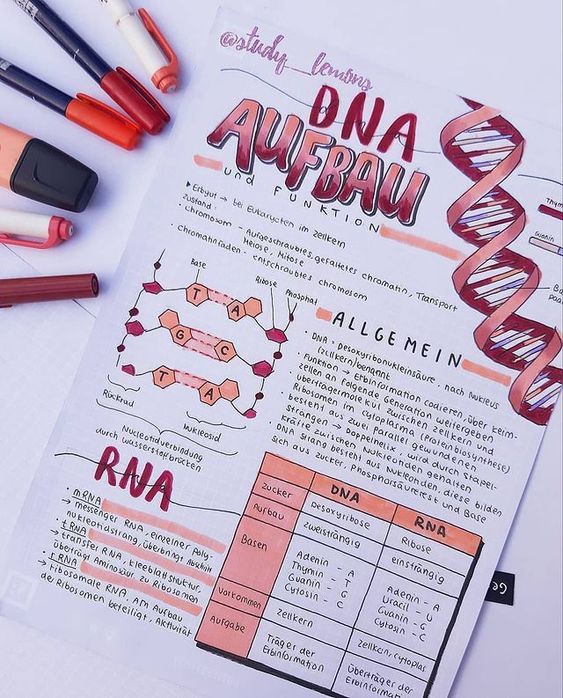 @study_lemons
DNA
AUFBAU
und FUNKTION
▸ Erbgut → bei Eukaryoten im Zellkern
zustand:
· Chromosom - Aufgeschraubtes, gefaltetes Chromatin, Transport
Meiose, Mitose
· Chromatinfäden - entschraubtes Chromosom
Base
Ribose
Phosphat
T A
G C
T A
Rückrad
Nukleosid
Nucleotidverbindung
durch Wasserstoffbrücken
Thym
Guanin
Ba
paa
ALLGEMEIN
· DNA = Desoxyribonukleinsäure, nach Nukleus
(Zellkern) benannt
· Funktion → Erbinformation codieren, über Keim-
zellen an folgende Generation weitergeben
· Überträgermolekül zwischen Zellkern und
Ribosomen im Cytoplasma (Proteinbiosynthese)
· besteht aus zwei parallel gewundenen
Strängen → Doppelhelix, wird durch Stapel-
kräfte zwischen Nukleotiden gehalten
· DNA Strang besteht aus Nukleotiden, diese bilden
sich aus Zucker, Phosphorsäurerest und Base
RNA
· mRNA
→ messenger RNA, einzelner Poly-
nukleotidstrang, überbringt Abschrift
· tRNA
→ transfer RNA, Kleeblattstruktur,
überträgt Aminosäur zu Ribosomen
· rRNA
→ ribosomale RNA, Am Aufbau
der Ribosomen beteiligt, Aktivität
DNA RNA
Zucker Desoxyribose Ribose
Aufbau zweisträngig einsträngig
Basen Adenin - A Adenin - A
Thymin - T Uracil - U
Guanin - G Guanin - G
Cytosin - C Cytosin - C
Vorkommen Zellkern Zellkern, Cytoplas
Aufgabe Träger der Überträger der
Erbinformation Erbinformation
Ge